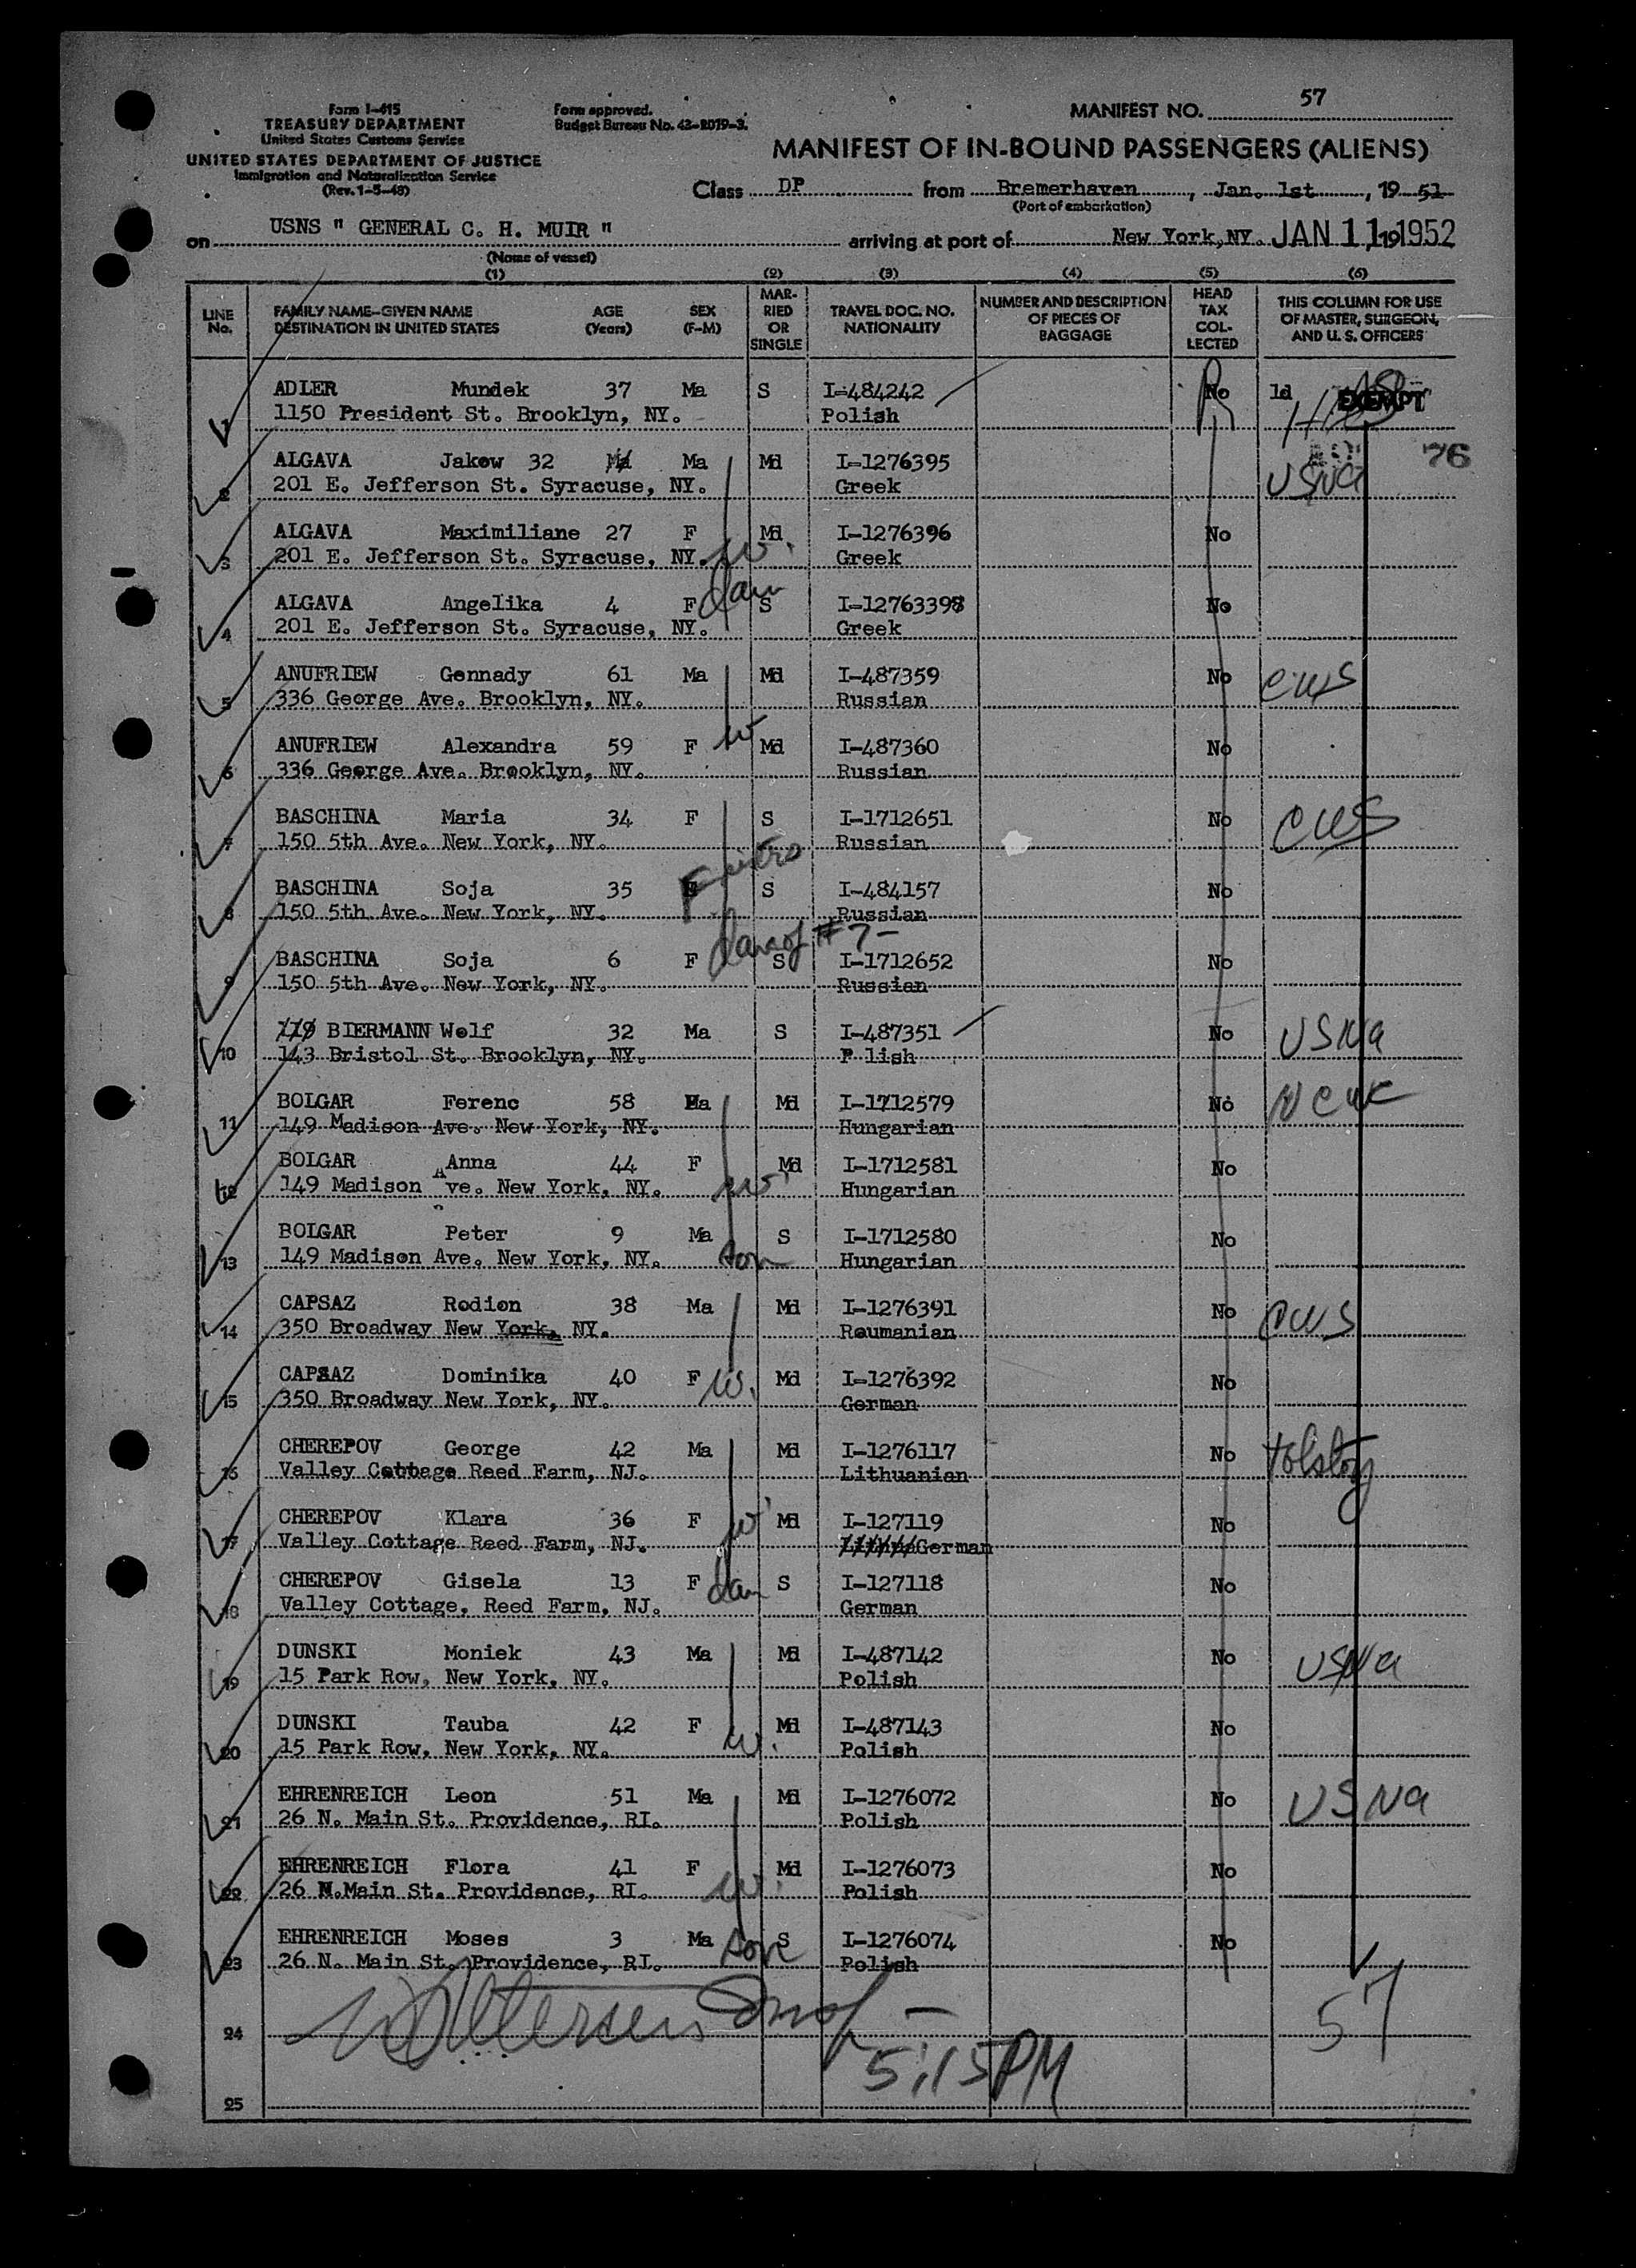 57
Form I-415
TREASURY DEPARTMENT
United States Customs Service
UNITED STATES DEPARTMENT OF JUSTICE
Immigration and Naturalization Service
(Rev. 1-5-48)
Form approved.
Budget Bureau No. 43-R079-3.
MANIFEST NO.
MANIFEST OF IN-BOUND PASSENGERS (ALIENS)
Class DP from Bremerhaven, Jan. 1st, 19 51
(Port of embarkation)
on USNS " GENERAL C. H. MUIR " arriving at port of New York,NY. JAN 11 19 1952
(Name of vessel)
(1) (2) (3) (4) (5) (6)
LINE No. FAMILY NAME-GIVEN NAME DESTINATION IN UNITED STATES AGE (Years) SEX (F-M) MARRIED OR SINGLE TRAVEL DOC. NO. NATIONALITY NUMBER AND DESCRIPTION OF PIECES OF BAGGAGE HEAD TAX COLLECTED THIS COLUMN FOR USE OF MASTER, SURGEON, AND U. S. OFFICERS
ADLER Mundek 37 Ma S I-484242 No 1d EXEMPT
1 1150 President St. Brooklyn, NY. Polish
ALGAVA Jakow 32 Ma Md I-1276395 76
2 201 E. Jefferson St. Syracuse, NY. Greek USNA
ALGAVA Maximiliane 27 F Md I-1276396 No
3 201 E. Jefferson St. Syracuse, NY. w. Greek
ALGAVA Angelika 4 F dau S I-12763398 No
4 201 E. Jefferson St. Syracuse, NY. Greek
ANUFRIEW Gennady 61 Ma Md I-487359 No CWS
5 336 George Ave. Brooklyn, NY. Russian
ANUFRIEW Alexandra 59 F w Md I-487360 No
6 336 George Ave. Brooklyn, NY. Russian
BASCHINA Maria 34 F S I-1712651 No CWS
7 150 5th Ave. New York, NY. Russian
BASCHINA Soja 35 F S I-484157 No
8 150 5th Ave. New York, NY. Russian
dau of #7-
BASCHINA Soja 6 F S I-1712652 No
9 150 5th Ave. New York, NY. Russian
119 BIERMANN Wolf 32 Ma S I-487351 No USNA
10 143 Bristol St. Brooklyn, NY. P lish
BOLGAR Ferenc 58 Ma Md I-1712579 No
11 149 Madison Ave. New York, NY. Hungarian
BOLGAR Anna 44 F Md I-1712581 No
12 149 Madison Ave. New York, NY. w. Hungarian
BOLGAR Peter 9 Ma S I-1712580 No
13 149 Madison Ave. New York, NY. son Hungarian
CAPSAZ Rodion 38 Ma Md I-1276391 No CWS
14 350 Broadway New York, NY. Roumanian
CAPSAZ Dominika 40 F w. Md I-1276392 No
15 350 Broadway New York, NY. German
CHEREPOV George 42 Ma Md I-1276117 No Tolstoy
16 Valley Cottage Reed Farm, NJ. Lithuanian
CHEREPOV Klara 36 F w Md I-127119 No
17 Valley Cottage Reed Farm, NJ. German
CHEREPOV Gisela 13 F dau S I-127118 No
18 Valley Cottage, Reed Farm, NJ. German
DUNSKI Moniek 43 Ma Md I-487142 No USNA
19 15 Park Row, New York, NY. Polish
DUNSKI Tauba 42 F Md I-487143 No
20 15 Park Row, New York, NY. w. Polish
EHRENREICH Leon 51 Ma Md I-1276072 No USNA
21 26 N. Main St. Providence, RI. Polish
EHRENREICH Flora 41 F Md I-1276073 No
22 26 N.Main St. Providence, RI. w. Polish
EHRENREICH Moses 3 Ma son S I-1276074 No
23 26 N. Main St. Providence, RI. Polish
24 57
5:15 PM
25